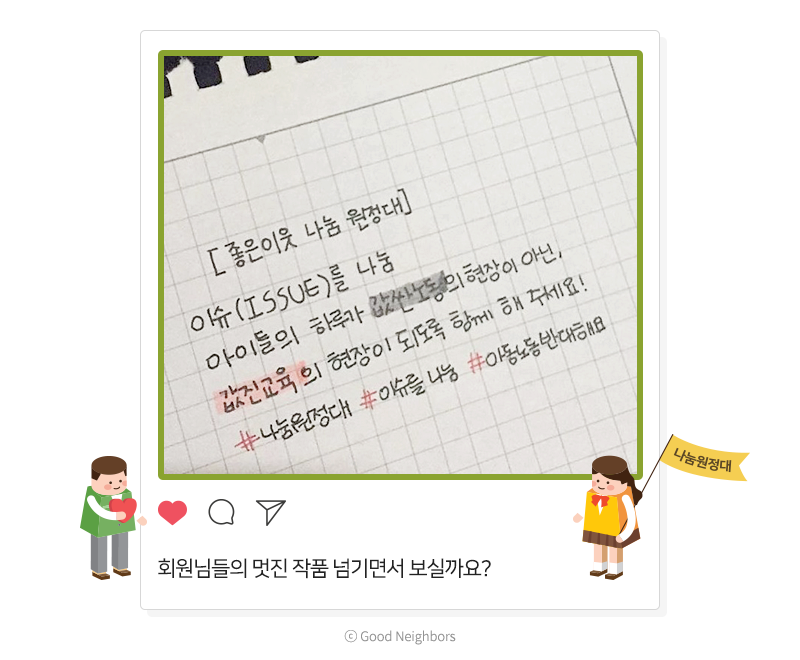 [좋은이웃 나눔 원정대]
이슈(ISSUE)를 나눔
아이들의 하루가 값싼노동의 현장이 아닌,
값진교육의 현장이 되도록 함께 해 주세요!
#나눔원정대 #이슈를 나눔 #아동노동반대해요
나눔원정대
회원님들의 멋진 작품 넘기면서 보실까요?
ⓒ Good Neighbors